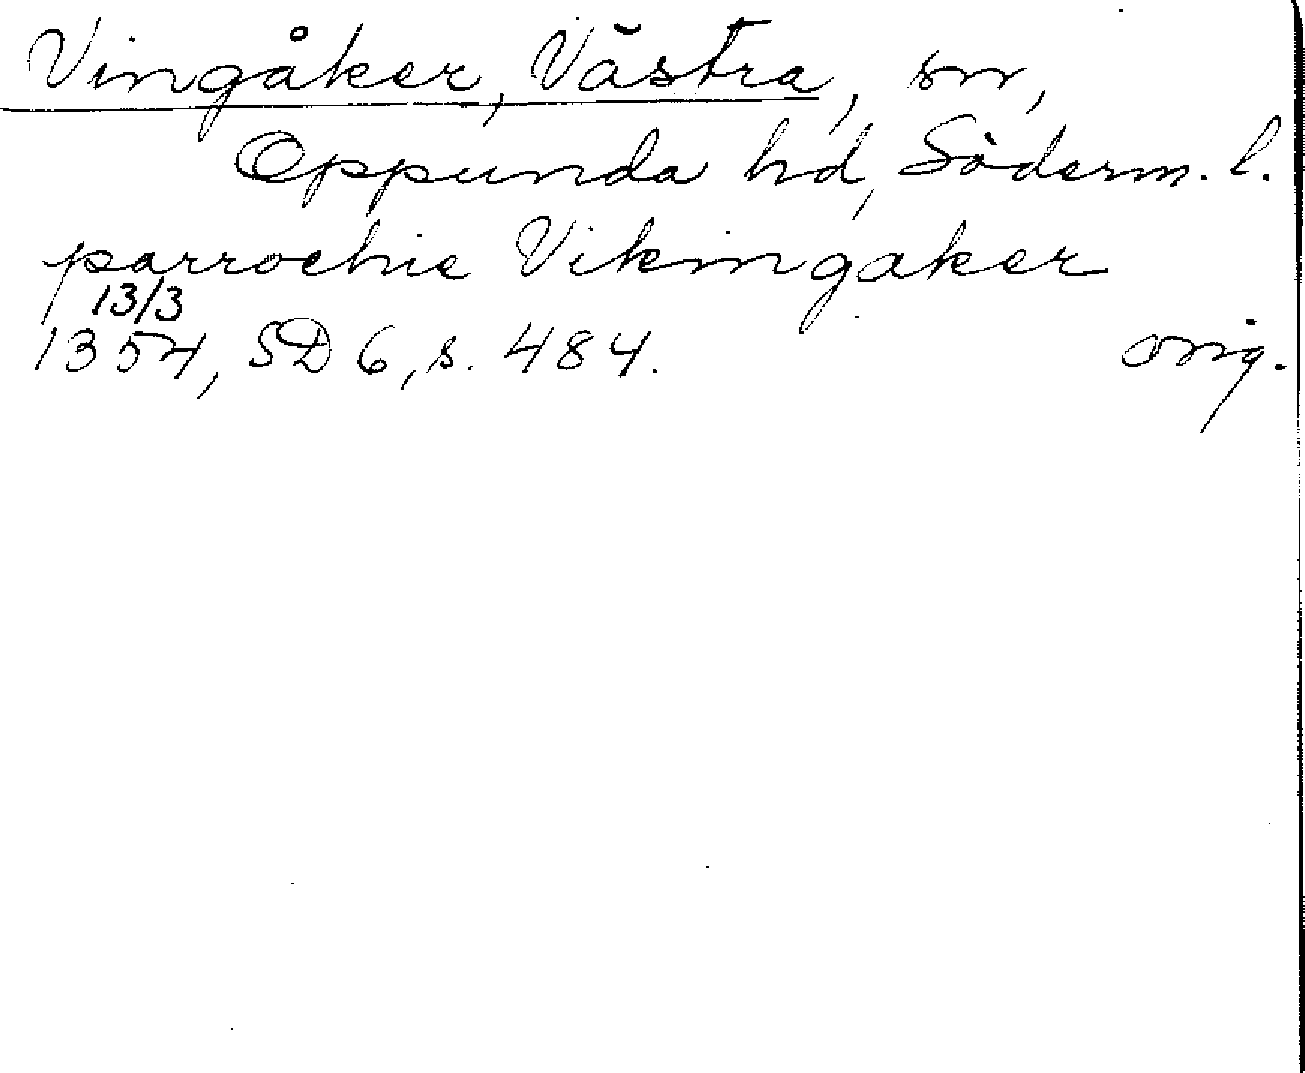 Vingåker, Västra, sn,
Oppunda hd, Söderm. l.
parrochie Vikingaker
13/3
1354, SD 6, s. 484. orig.